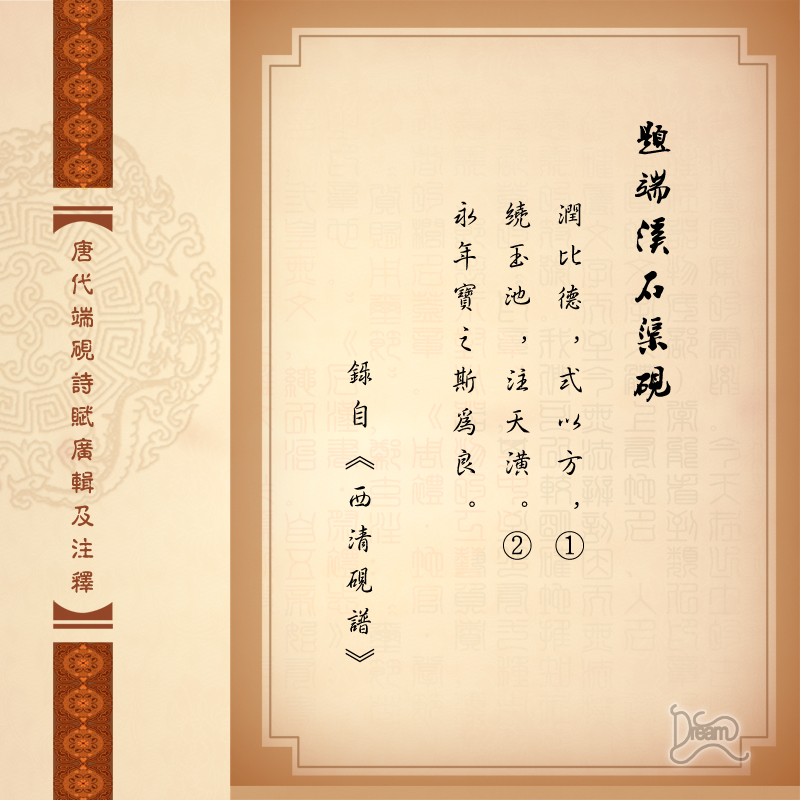 題端溪石渠硯
潤比德，式以方，①
繞玉池，注天潢。②
永年寶之斯為良。
錄自《西清硯譜》
唐代端硯詩賦廣輯及注釋
Dream